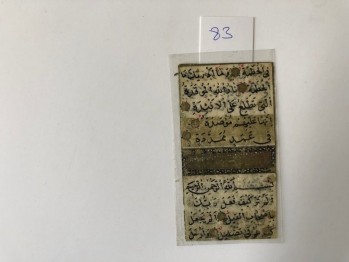 83
فى الحطمة وما ادريك ما
الحطمة نار الله الموقدة
التى تطلع على الافئدة
انها عليهم مؤصدة
فى عمد ممددة
بسم الله الرحمن الرحيم
الم تر كيف فعل ربك
باصحاب الفيل الم يجعل